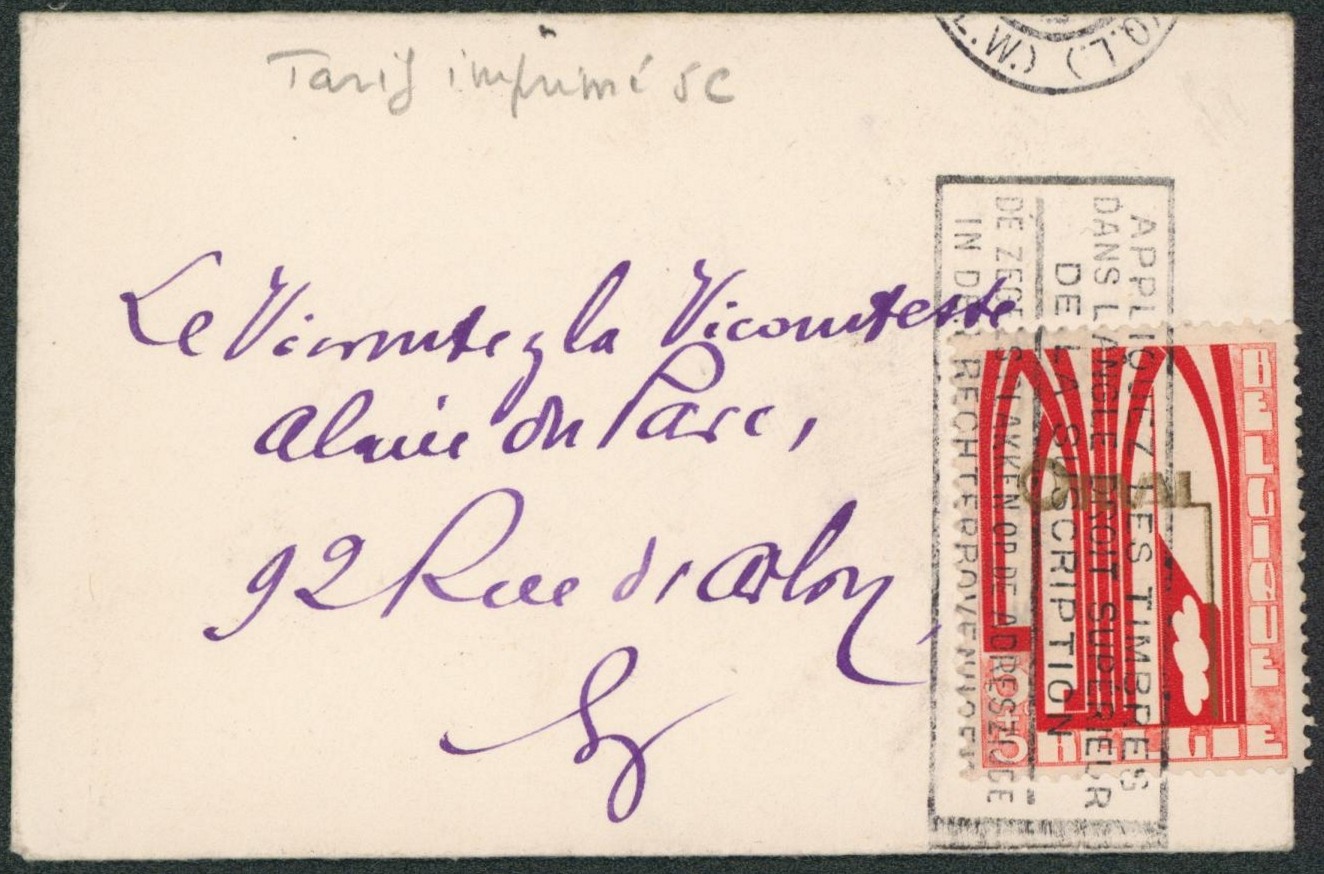 Tarif imprimé 5c
(Q.L.)
Le Vicomte & la Vicomtesse
Alain du Parc,
92 Rue d'Arlon,
APPLIQUEZ LES TIMBRES
DANS L'ANGLE DROIT SUPERIEUR
DE LA SUSCRIPTION
DE ZEGELS PLAKKEN OP DE ADRESZIJDE
IN DEN RECHTERBOVENHOEK
ORVAL
BELGIQUE
5+5
BELGIE